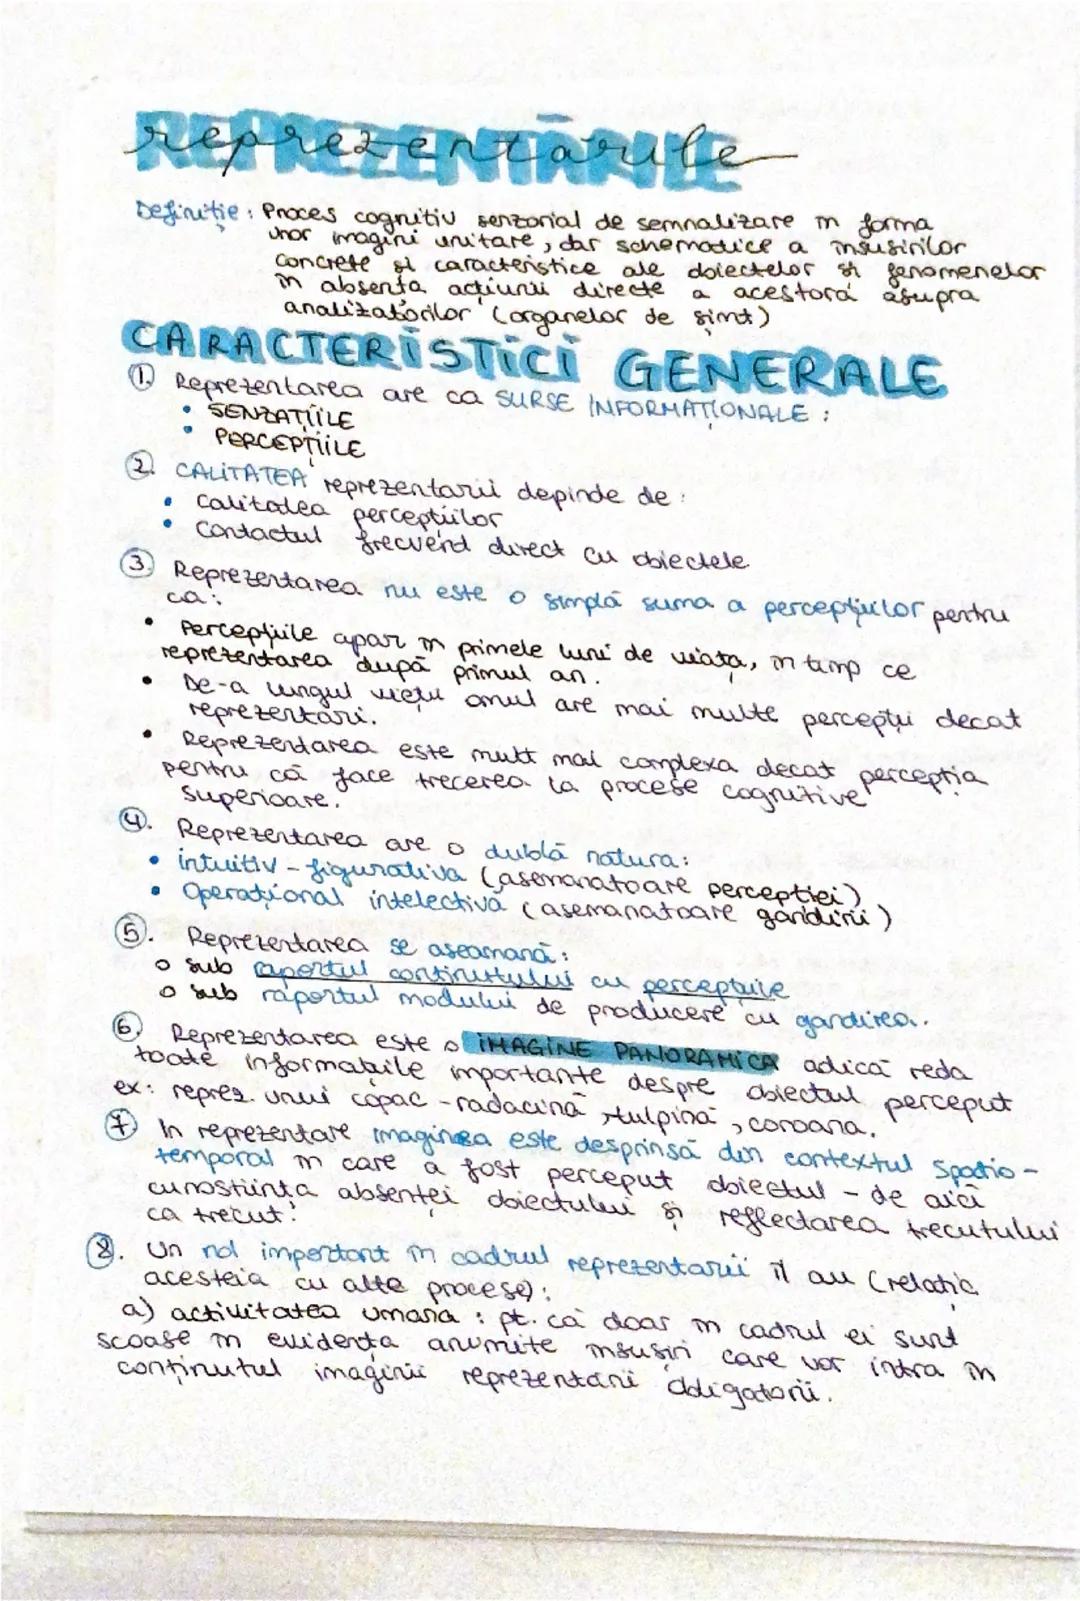 REPREZENTĂRILE
reprezentările
Definiție: Proces cognitiv senzorial de semnalizare în forma
unor imagini unitare, dar schematice a însușirilor
concrete și caracteristice ale obiectelor și fenomenelor
în absența acțiunii directe a acestora asupra
analizatorilor (organelor de simț)
CARACTERISTICI GENERALE
1. Reprezentarea are ca SURSE INFORMAȚIONALE:
• SENZAȚIILE
• PERCEPȚIILE
2. CALITATEA reprezentarii depinde de:
• Calitatea percepțiilor
• Contactul frecvend direct cu obiectele
3. Reprezentarea nu este o simplă suma a percepțiilor pentru
ca:
• Percepțiile apar în primele luni de viața, în timp ce
reprezentarea după primul an.
• De-a lungul vieții omul are mai multe percepții decat
reprezentări.
• Reprezendarea este mult mai complexa decat percepția
pentru că face trecerea la procese cognitive
superioare.
4. Reprezentarea are o dublă natura:
• intuitiv - figurativa (asemanatoare percepției)
• Operațional intelectivă (asemanatoare gandirii)
5. Reprezentarea se aseamană:
o sub raportul continutului cu percepțiile
o sub raportul modului de producere cu gandirea.
6. Reprezendarea este o IMAGINE PANORAMICA adică reda
toate informațiile importante despre obiectul perceput
ex: reprez. unui copac - radacină, tulpină, coroana.
7. In reprezentare imaginea este desprinsă din contextul spatio-
temporal în care a fost perceput obiectul - de aici
cunostiința absenței obiectului și reflectarea trecutului
ca trecut!
8. Un rol important în cadrul reprezentarii îl au (relația
acesteia cu alte procese):
a) activitatea umana: pt. că doar în cadrul ei sunt
scoase în evidența anumite însușiri care vor intra în
conținutul imaginii reprezentării obligatorii.